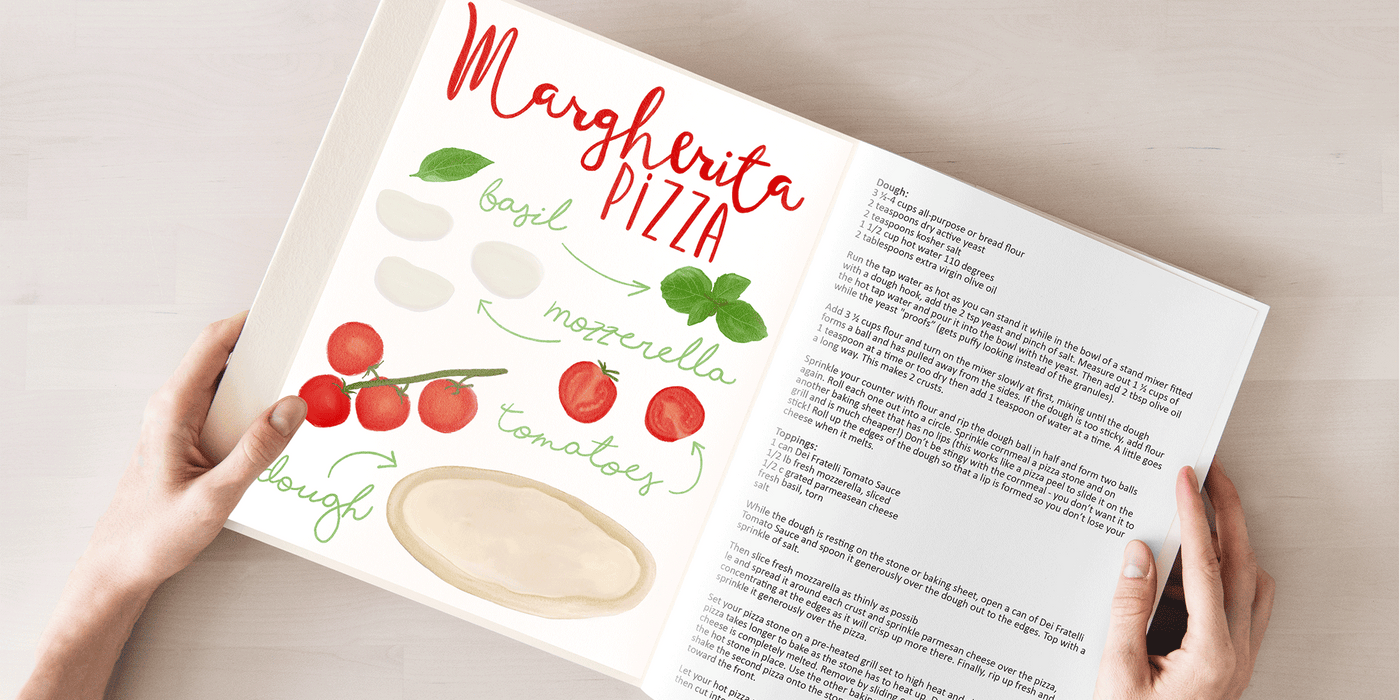 Margherita
PIZZA
basil
mozzerella
tomatoes
dough
Dough:
3 ½-4 cups all-purpose or bread flour
2 teaspoons dry active yeast
2 teaspoons kosher salt
1 1/2 cup hot water 110 degrees
2 tablespoons extra virgin olive oil
Run the tap water as hot as you can stand it while in the bowl of a stand mixer fitted
with a dough hook, add the 2 tsp yeast and pinch of salt. Measure out 1 ½ cups of
the hot tap water and pour it into the bowl with the yeast. Then add 2 tbsp olive oil
while the yeast "proofs" (gets puffy looking instead of the granules).
Add 3 ½ cups flour and turn on the mixer slowly at first, mixing until the dough
forms a ball and has pulled away from the sides. If the dough is too sticky, add flour
1 teaspoon at a time or too dry then add 1 teaspoon of water at a time. A little goes
a long way. This makes 2 crusts.
Sprinkle your counter with flour and rip the dough ball in half and form two balls
again. Roll each one out into a circle. Sprinkle cornmeal a pizza stone and on
another baking sheet that has no lips (this works like a pizza peel to slide it on the
grill and is much cheaper!) Don't be stingy with the cornmeal - you don't want it to
stick! Roll up the edges of the dough so that a lip is formed so you don't lose your
cheese when it melts.
Toppings:
1 can Dei Fratelli Tomato Sauce
1/2 lb fresh mozzerella, sliced
1/2 c grated parmeasean cheese
fresh basil, torn
salt
While the dough is resting on the stone or baking sheet, open a can of Dei Fratelli
Tomato Sauce and spoon it generously over the dough out to the edges. Top with a
sprinkle of salt.
Then slice fresh mozzarella as thinly as possib
le and spread it around each crust and sprinkle parmesan cheese over the pizza,
concentrating at the edges as it will crisp up more there. Finally, rip up fresh and
sprinkle it generously over the pizza.
Set your pizza stone on a pre-heated grill set to high heat and
pizza takes longer to bake as the stone has to heat up.
cheese is completely melted. Remove by sliding
the hot stone in place. Use the other baking
shake the second pizza onto the stone
toward the front.
Let your hot pizza
then cut into